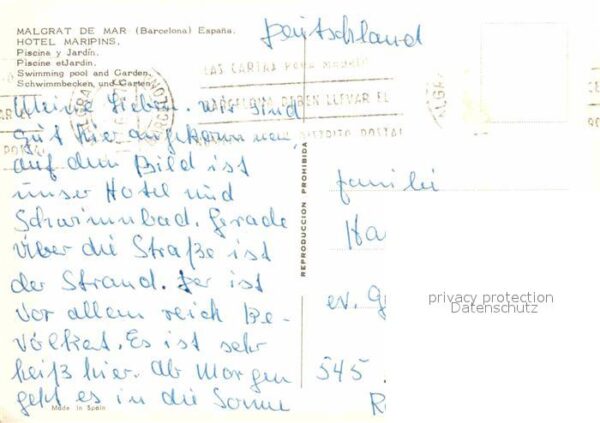 MALGRAT DE MAR (Barcelona) España.
HOTEL MARIPINS.
Piscina y Jardín.
Piscine etJardin.
Swimming pool and Garden.
Schwimmbecken und Garten.
Deutschland
LAS CARTAS PARA MADRID
BARCELONA DEBEN LLEVAR EL
DISTRITO POSTAL
Meine Lieben. wir sind
gut hier angekommen,
auf dem Bild ist
unser Hotel und
Schwimmbad. Gerade
über die Straße ist
der Strand. Der ist
vor allem reich Be-
völkat. Es ist sehr
heiß hier. Ab Morgen
geht es in die Sonne
Made in Spain
REPRODUCCION PROHIBIDA
Familie
Ha
ev. G
545
R
privacy protection
Datenschutz